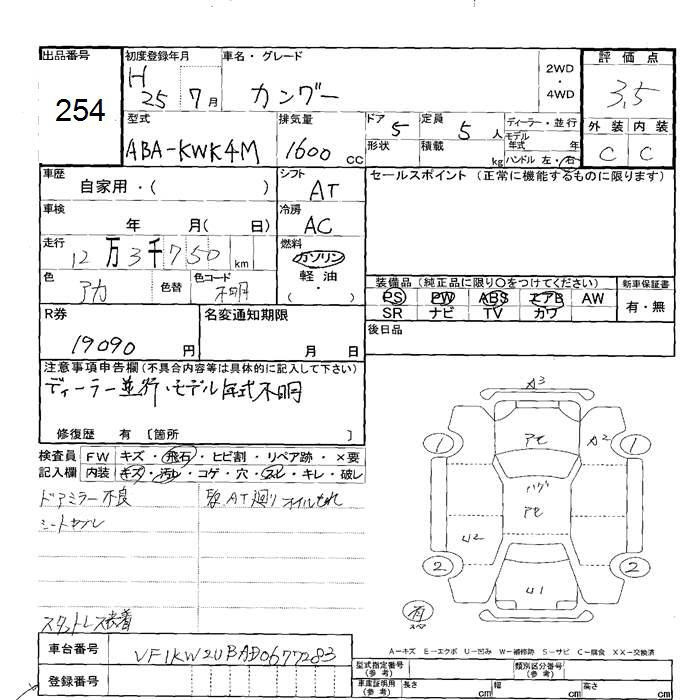 出品番号 初度登録年月 車名・グレード 2WD・4WD 評価点
254 H 25 7月 カングー 3.5
型式 排気量 ドア 5 定員 5人 ディーラー・並行 外装 内装
ABA-KWK4M 1600 cc 形状 積載 kg モデル年式 年 C C
ハンドル 左・右
車歴 シフト セールスポイント (正常に機能するものに限ります)
自家用・( ) AT
車検 冷房
年 月( 日) AC
走行 燃料
12万3千750km ガソリン
色 色替 色コード 軽油
アカ 不明 ・( )
装備品 (純正品に限り〇をつけてください) 新車保証書
PS PW ABS エアB AW 有・無
SR ナビ TV カワ
R券 名変通知期限 後日品
19090円 月 日
注意事項申告欄(不具合内容等は具体的に記入して下さい)
ディーラー並行・モデル年式不明
修復歴 有 〔箇所 〕
検査員 FW キズ・飛石・ヒビ割・リペア跡・×要
記入欄 内装 キズ・汚レ・コゲ・穴・スレ・キレ・破レ
ドアミラー不良 AT廻りオイルもれ
シートヤブレ
スタットレス装着
A3
1 アセ A2 1
ハゲ
アセ
U2
2 U1 2
有
スペア
A-キズ E-エクボ U-凹み W-補修跡 S-サビ C-腐食 XX-交換済
車台番号 VF1KW2UBAD0677283
登録番号
型式指定番号(参考) 類別区分番号(参考)
車庫証明用(参考) 長さ cm 幅 cm 高さ cm